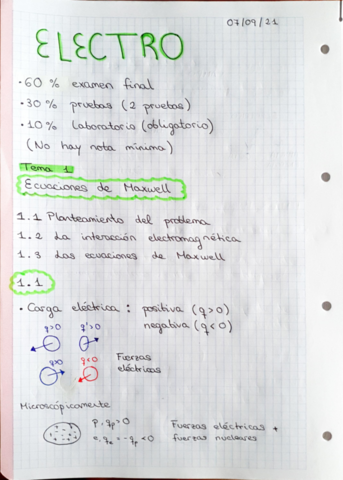 07/09/21
ELECTRO
· 60 % examen final
· 30 % pruebas (2 pruebas)
· 10 % Laboratorio (obligatorio)
(No hay nota mínima)
Tema 1
Ecuaciones de Maxwell
1.1 Planteamiento del problema
1.2 La interacción electromagnética
1.3 Las ecuaciones de Maxwell
1.1
· Carga eléctrica : positiva (q>0)
negativa (q<0)
q>0 q'>0
q>0 q<0
Fuerzas
eléctricas
Microscópicamente
p, qp>0
e, qe = -qp <0
Fuerzas eléctricas +
fuerzas nucleares